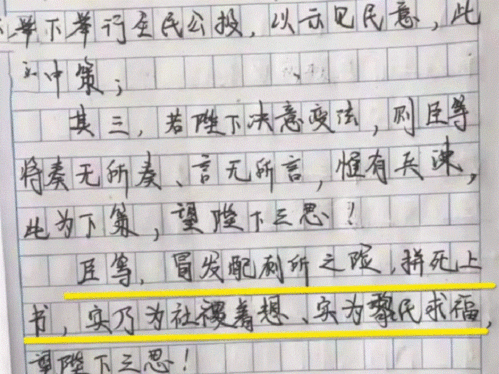 下举行全民公投，以示见民意，此
为中策；
其三，若陛下决意变法，则臣等
将奏无所奏、言无所言，惟有兵谏，
此为下策，望陛下三思！
臣等，冒发配厕所之险，拼死上
书，实乃为社稷着想、实为黎民求福，
望陛下三思！